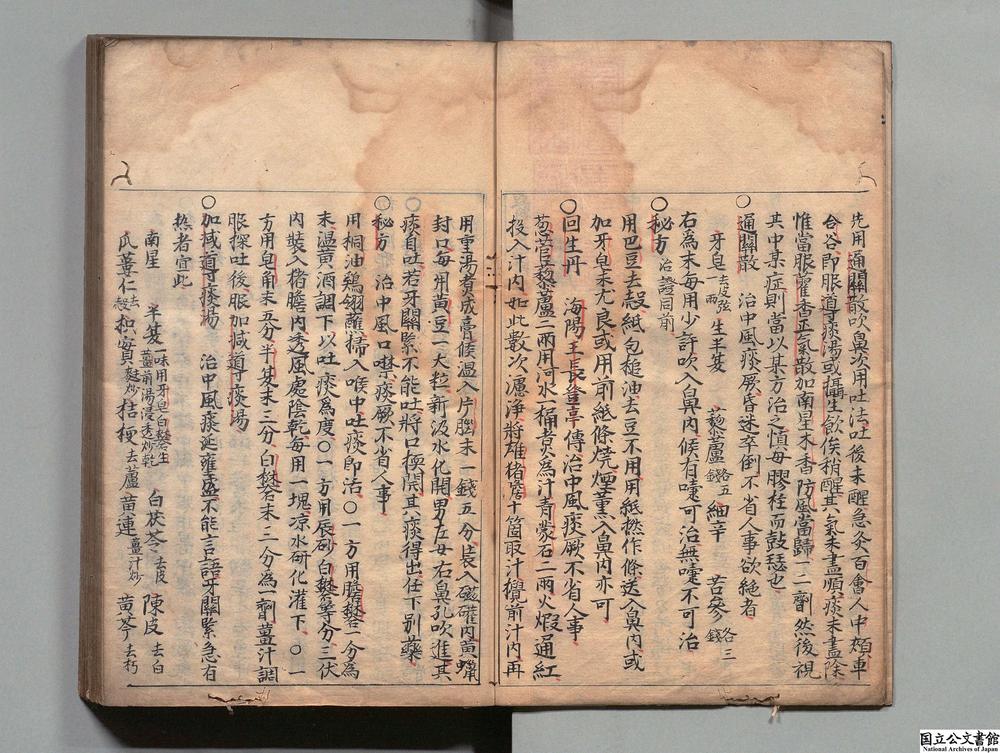 先用通關散吹鼻次用吐法吐後未醒急灸百會人中頰車
合谷即服導痰湯或攝生飲俟稍醒其氣未盡順痰未盡除
惟當服藿香正氣散加南星木香防風當歸一二劑然後視
其中某症則當以某方治之慎毋膠柱而鼓瑟也
○通關散 治中風痰厥昏迷卒倒不省人事欲絶者
牙皂去皮弦一兩 生半夏 藜蘆各五錢 細辛 苦參各三錢
右為末每用少許吹入鼻內候有嚏可治無嚏不可治
○秘方 治證同前
用巴豆去殼紙包槌油去豆不用用紙撚作條送入鼻內或
加牙皂末尤良或用前紙條燒煙薰入鼻內亦可
○回生丹 海陽王長重享傳治中風痰厥不省人事
葱管藜蘆二兩用河水一桶煮為汁青蒙石二兩火煅通紅
投入汁內如此數次濾淨將雄猪膽十箇取汁攪前汁內再
用重湯煮成膏候溫入片腦末一錢五分裝入磁確內黄蠟
封口每用黄豆一大粒新汲水化開男左女右鼻孔吹進其
痰自吐若牙關緊不能吐將口撬開其痰得出任下別藥
○秘方 治中風口噤痰厥不省人事
用桐油鷄翎蘸掃入喉中吐痰即活○一方用膽礬一分為
末溫黄酒調下以吐痰為度○一方用辰砂白礬等分三伏
內裝入猪膽內透風處陰乾每用一塊凉水研化灌下○一
方用皂角末五分半夏末三分白礬末二分為一劑薑汁調
服探吐後服加減導痰湯
○加減導痰湯 治中風痰涎壅盛不能言語牙關緊急有
熱者宜此
南星 半夏二味用牙皂白礬生薑煎湯浸透炒乾 白茯苓去皮 陳皮去白
瓜蔞仁去殼 枳實麩炒 桔梗去蘆 黄連薑汁炒 黄芩去朽
国立公文書館
National Archives of Japan